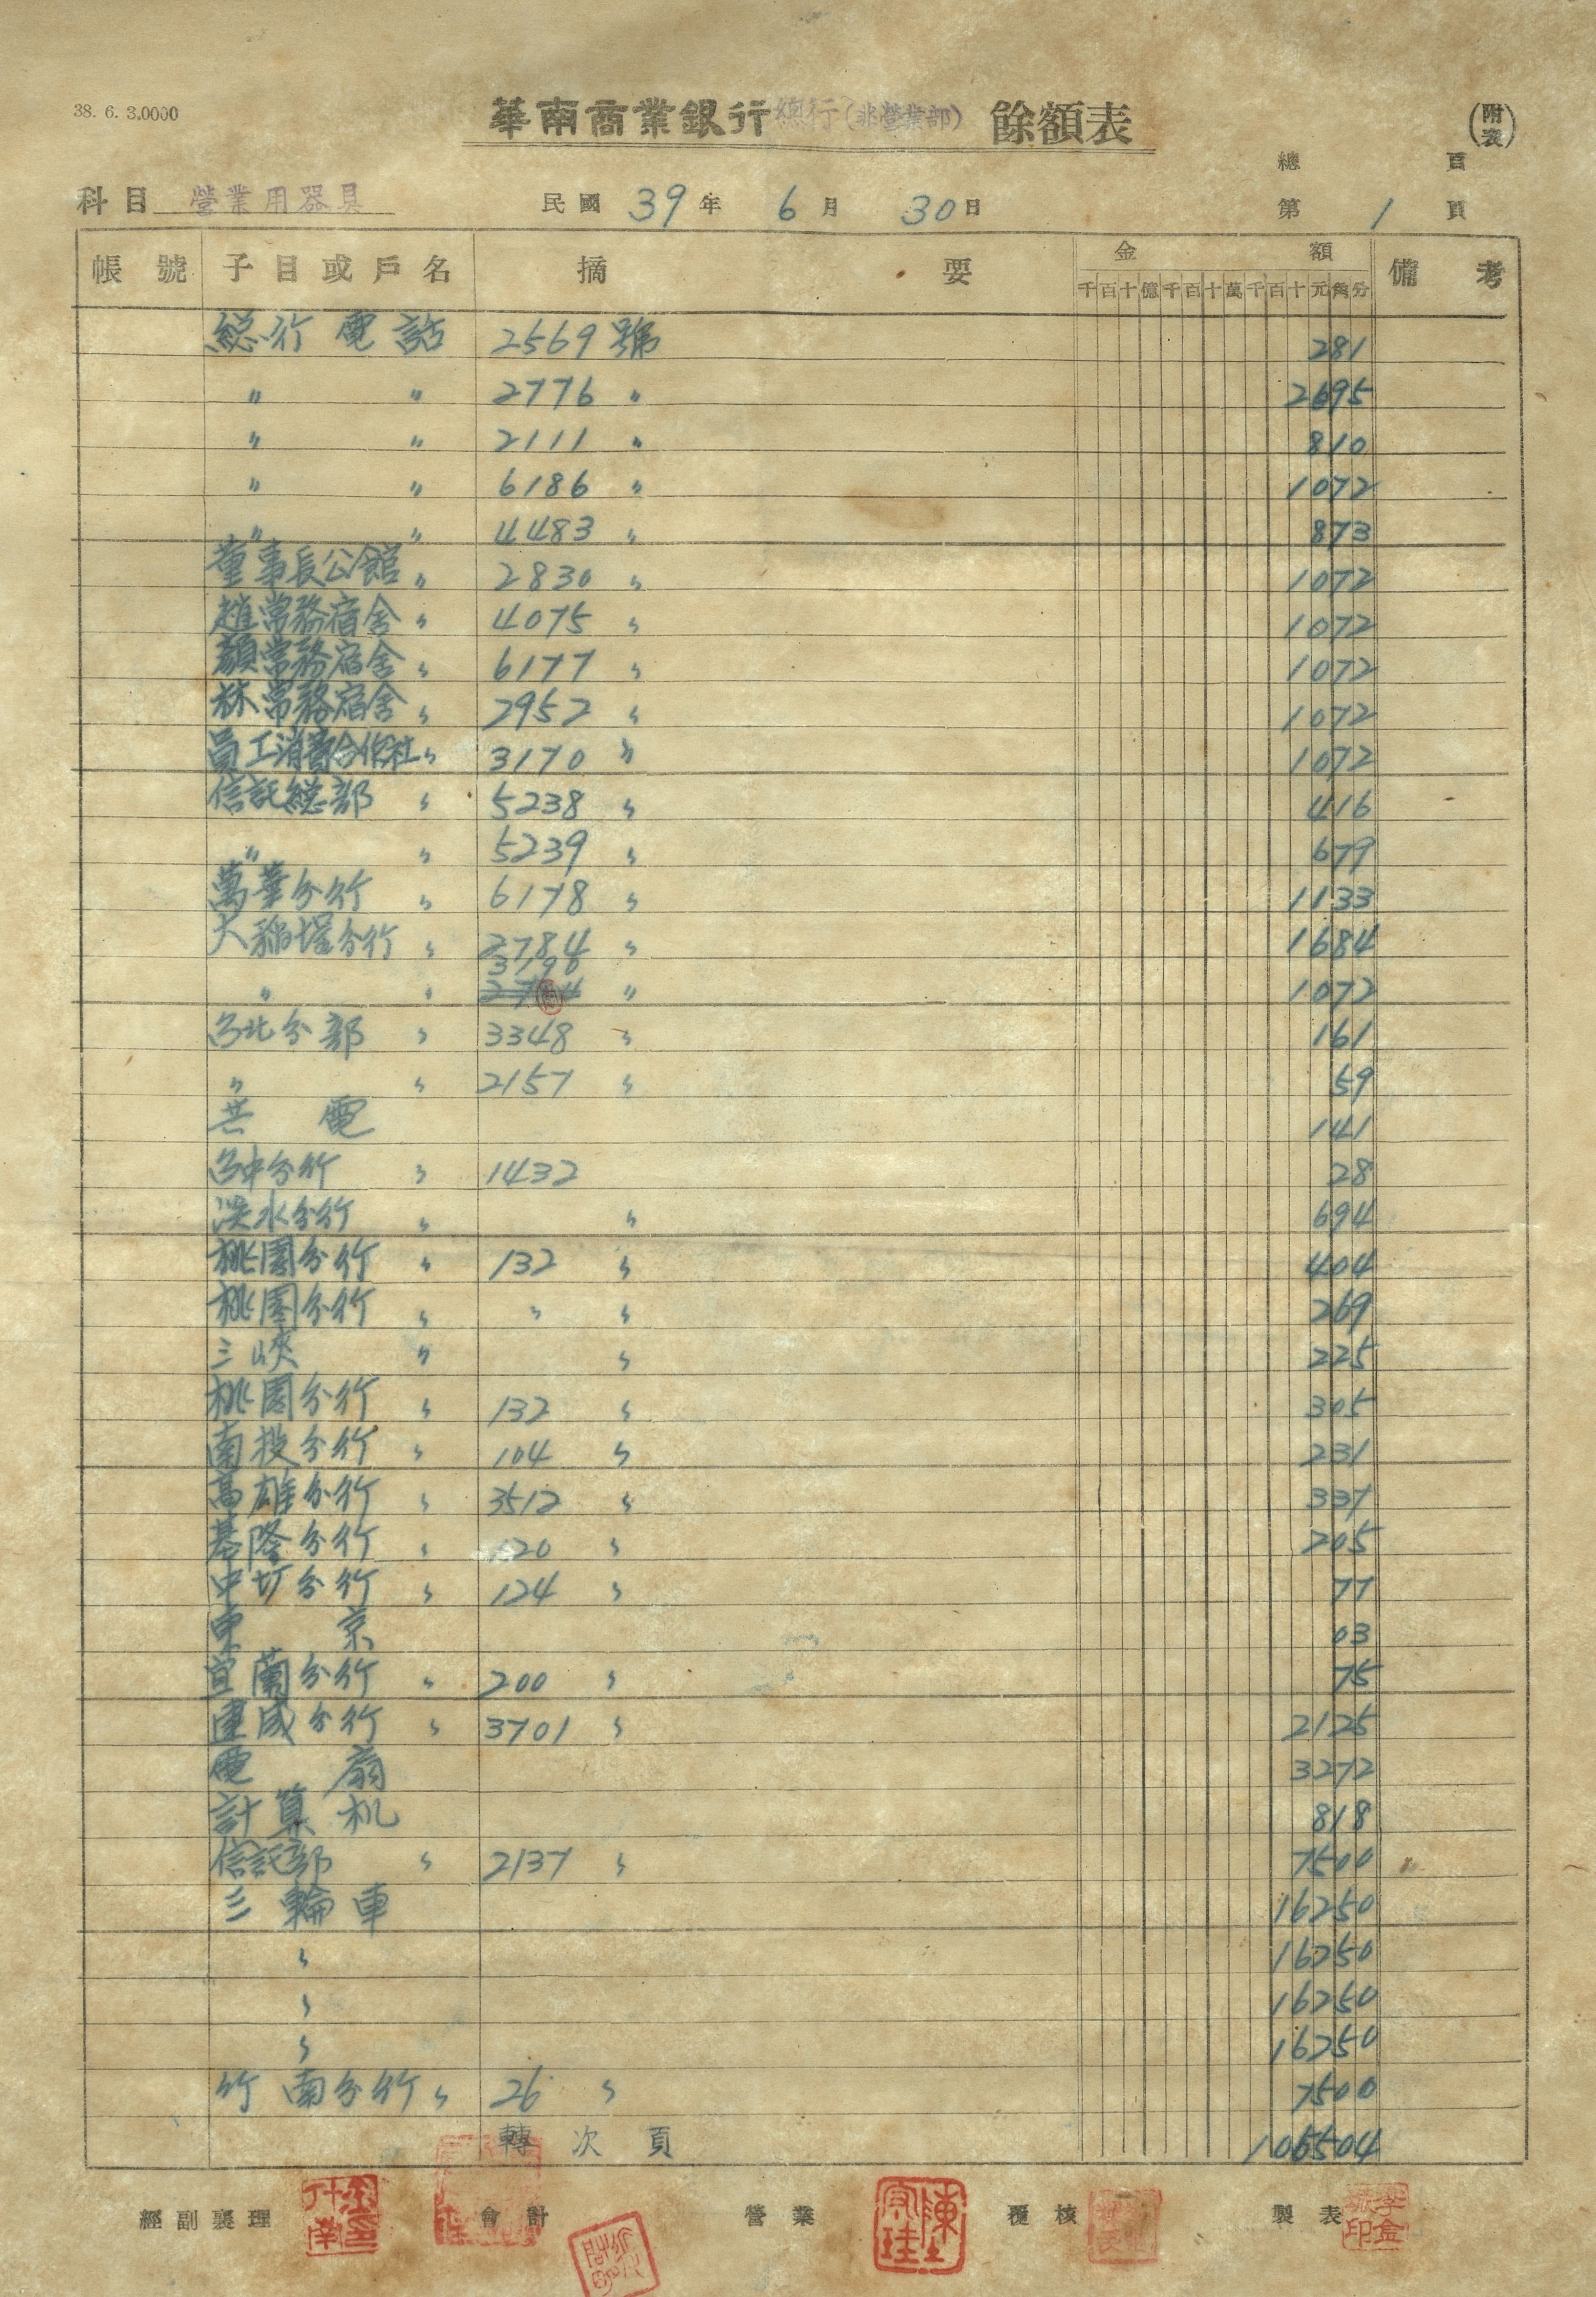 38. 6. 3.0000
華南商業銀行總行(非營業部) 餘額表 (附表)
總 頁
科目 營業用器具 民國 39 年 6 月 30 日 第 1 頁
帳號 子目或戶名 摘要 金額 備考
千百十億千百十萬千百十元角分
総行電話 2569號 281
〃 〃 2776 〃 2695
〃 〃 2111 〃 810
〃 〃 6186 〃 1072
〃 〃 4483 〃 873
董事長公館 〃 2830 〃 1072
趙常務宿舍 〃 4075 〃 1072
顏常務宿舍 〃 6177 〃 1072
林常務宿舍 〃 2952 〃 1072
員工消費合作社 〃 3170 〃 1072
信託総部 〃 5238 〃 416
〃 〃 5239 〃 679
萬華分行 〃 6178 〃 1133
大稲埕分行 〃 2784 〃 1684
〃 〃 3190 〃 1072
台北分部 〃 3348 〃 161
〃 〃 2157 〃 59
共電 141
台中分行 〃 1432 28
淡水分行 〃 〃 694
桃園分行 〃 132 〃 404
桃園分行 〃 〃 〃 269
三峽 〃 〃 225
桃園分行 〃 132 〃 305
南投分行 〃 104 〃 231
高雄分行 〃 3512 〃 337
基隆分行 〃 120 〃 205
中圢分行 〃 124 〃 77
東京 03
宜蘭分行 〃 200 〃 75
建成分行 〃 3701 〃 2125
電扇 3272
計算机 818
信託部 〃 2137 〃 7500
三輪車 16250
〃 16250
〃 16250
〃 16250
竹南分行 〃 26 〃 7500
轉次頁 106504
經副襄理 會計 營業 覆核 製表